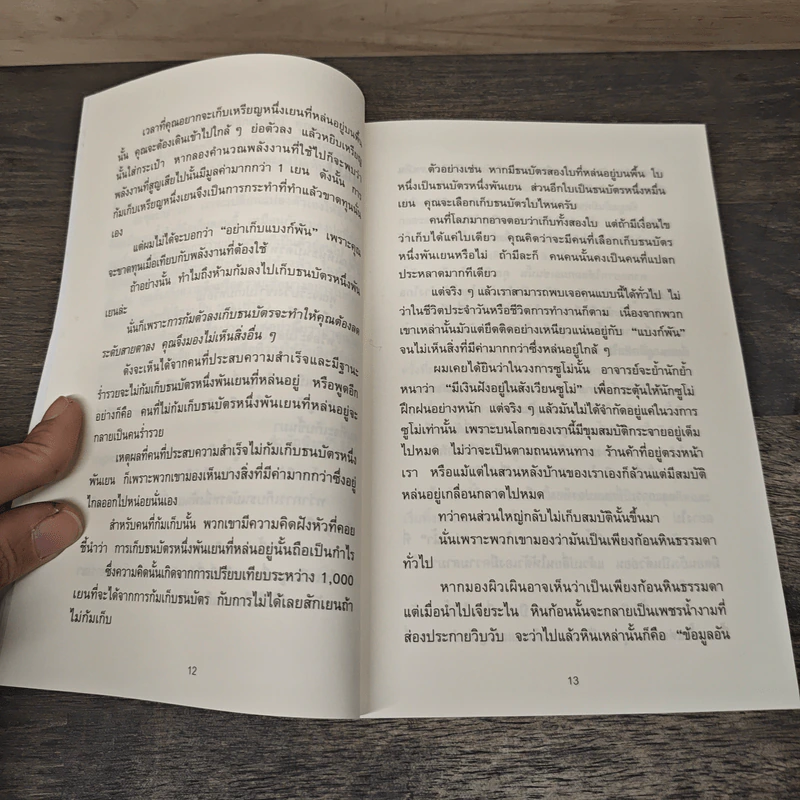 เวลาที่คุณอยากจะเก็บเหรียญหนึ่งเยนที่หล่นอยู่บนพื้น
นั้น คุณจะต้องเดินเข้าไปใกล้ ๆ ย่อตัวลง แล้วหยิบเหรียญ
นั้นใส่กระเป๋า หากลองคำนวณพลังงานที่ใช้ไปก็จะพบว่า
พลังงานที่สูญเสียไปนั้นมีมูลค่ามากกว่า 1 เยน ดังนั้น การ
ก้มเก็บเหรียญหนึ่งเยนจึงเป็นการกระทำที่ทำแล้วขาดทุนนั่น
เอง
แต่ผมไม่ได้จะบอกว่า “อย่าเก็บแบงก์พัน” เพราะคุณ
จะขาดทุนเมื่อเทียบกับพลังงานที่ต้องใช้
ถ้าอย่างนั้น ทำไมถึงห้ามก้มลงไปเก็บธนบัตรหนึ่งพัน
เยนล่ะ
นั่นก็เพราะการก้มตัวลงเก็บธนบัตรจะทำให้คุณต้องลด
ระดับสายตาลง คุณจึงมองไม่เห็นสิ่งอื่น ๆ
ดังจะเห็นได้จากคนที่ประสบความสำเร็จและมีฐานะ
ร่ำรวยจะไม่ก้มเก็บธนบัตรหนึ่งพันเยนที่หล่นอยู่ หรือพูดอีก
อย่างก็คือ คนที่ไม่ก้มเก็บธนบัตรหนึ่งพันเยนที่หล่นอยู่จะ
กลายเป็นคนร่ำรวย
เหตุผลที่คนที่ประสบความสำเร็จไม่ก้มเก็บธนบัตรหนึ่ง
พันเยน ก็เพราะพวกเขามองเห็นบางสิ่งที่มีค่ามากกว่าซึ่งอยู่
ไกลออกไปหน่อยนั่นเอง
สำหรับคนที่ก้มเก็บนั้น พวกเขามีความคิดฝังหัวที่คอย
ชี้นำว่า การเก็บธนบัตรหนึ่งพันเยนที่หล่นอยู่นั้นถือเป็นกำไร
ซึ่งความคิดนั้นเกิดจากการเปรียบเทียบระหว่าง 1,000
เยนที่จะได้จากการก้มเก็บธนบัตร กับการไม่ได้เลยสักเยนถ้า
ไม่ก้มเก็บ
12
ตัวอย่างเช่น หากมีธนบัตรสองใบที่หล่นอยู่บนพื้น ใบ
หนึ่งเป็นธนบัตรหนึ่งพันเยน ส่วนอีกใบเป็นธนบัตรหนึ่งหมื่น
เยน คุณจะเลือกเก็บธนบัตรใบไหนครับ
คนที่โลภมากอาจตอบว่าเก็บทั้งสองใบ แต่ถ้ามีเงื่อนไข
ว่าเก็บได้แค่ใบเดียว คุณคิดว่าจะมีคนที่เลือกเก็บธนบัตร
หนึ่งพันเยนหรือไม่ ถ้ามีละก็ คนคนนั้นคงเป็นคนที่แปลก
ประหลาดมากทีเดียว
แต่จริง ๆ แล้วเราสามารถพบเจอคนแบบนี้ได้ทั่วไป ไม่
ว่าในชีวิตประจำวันหรือชีวิตการทำงานก็ตาม เนื่องจากพวก
เขาเหล่านั้นมัวแต่ยึดติดอย่างเหนียวแน่นอยู่กับ “แบงก์พัน”
จนไม่เห็นสิ่งที่มีค่ามากกว่าซึ่งหล่นอยู่ใกล้ ๆ
ผมเคยได้ยินว่าในวงการซูโม่นั้น อาจารย์จะย้ำนักย้ำ
หนาว่า “มีเงินฝังอยู่ในสังเวียนซูโม่” เพื่อกระตุ้นให้นักซูโม่
ฝึกฝนอย่างหนัก แต่จริง ๆ แล้วมันไม่ได้จำกัดอยู่แค่ในวงการ
ซูโม่เท่านั้น เพราะบนโลกของเรานี้มีขุมสมบัติกระจายอยู่เต็ม
ไปหมด ไม่ว่าจะเป็นตามถนนหนทาง ร้านค้าที่อยู่ตรงหน้า
เรา หรือแม้แต่ในสวนหลังบ้านของเราเองก็ล้วนแต่มีสมบัติ
หล่นอยู่เกลื่อนกลาดไปหมด
ทว่าคนส่วนใหญ่กลับไม่เก็บสมบัตินั้นขึ้นมา
นั่นเพราะพวกเขามองว่ามันเป็นเพียงก้อนหินธรรมดา
ทั่วไป
หากมองผิวเผินอาจเห็นว่าเป็นเพียงก้อนหินธรรมดา
แต่เมื่อนำไปเจียระไน หินก้อนนั้นจะกลายเป็นเพชรน้ำงามที่
ส่องประกายวิบวับ จะว่าไปแล้วหินเหล่านั้นก็คือ “ข้อมูลอัน
13